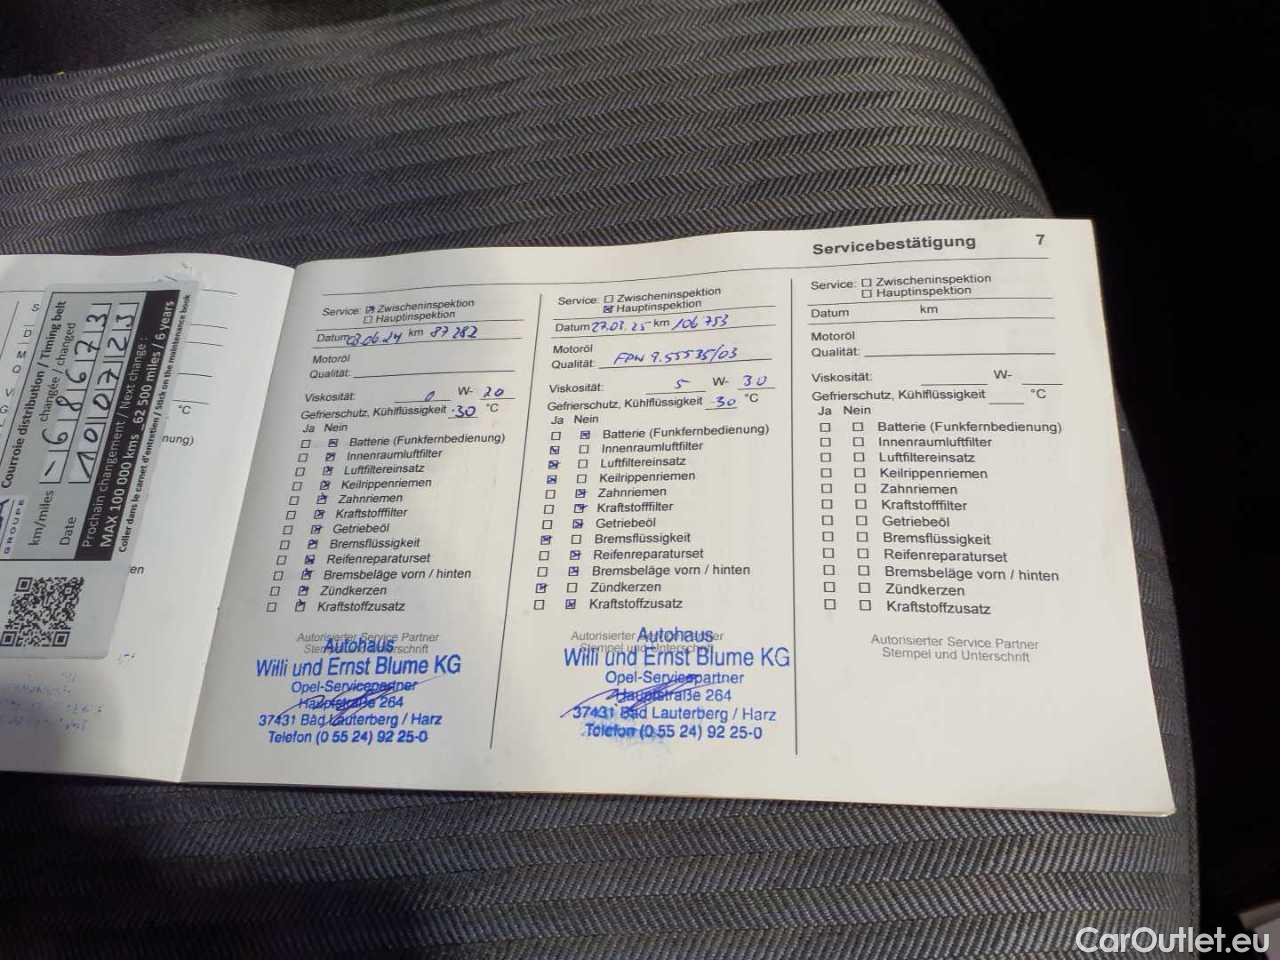 Courroie distribution / Timing belt
changée / changed
km/miles
-68673
Date
100723
Prochain changement / Next change :
MAX 100 000 kms _62 500 miles / 6 years
Coller dans le carnet d'entretien / Stick on the maintenance book
GROUPE
°C
Servicebestätigung 7
Service: Zwischeninspektion
Hauptinspektion
Datum 03.06.24 km 87282
Motoröl
Qualität:
Viskosität: 0 W- 20
Gefrierschutz, Kühlflüssigkeit -30 °C
Ja Nein
Batterie (Funkfernbedienung)
Innenraumluftfilter
Luftfiltereinsatz
Keilrippenriemen
Zahnriemen
Kraftstoffilter
Getriebeöl
Bremsflüssigkeit
Reifenreparaturset
Bremsbeläge vorn / hinten
Zündkerzen
Kraftstoffzusatz
Autorisierter Service Partner
Autohaus
Willi und Ernst Blume KG
Opel-Servicepartner
Hauptstraße 264
37431 Bad Lauterberg / Harz
Telefon (0 55 24) 92 25-0
Service: Zwischeninspektion
Hauptinspektion
Datum 27.03.25 km 106753
Motoröl
Qualität: FPW 9.55535/03
Viskosität: 5 W- 30
Gefrierschutz, Kühlflüssigkeit -30 °C
Ja Nein
Batterie (Funkfernbedienung)
Innenraumluftfilter
Luftfiltereinsatz
Keilrippenriemen
Zahnriemen
Kraftstoffilter
Getriebeöl
Bremsflüssigkeit
Reifenreparaturset
Bremsbeläge vorn / hinten
Zündkerzen
Kraftstoffzusatz
Autorisierter Service Partner
Stempel und Unterschrift
Autohaus
Willi und Ernst Blume KG
Opel-Servicepartner
Hauptstraße 264
37431 Bad Lauterberg / Harz
Telefon (0 55 24) 92 25-0
Service: Zwischeninspektion
Hauptinspektion
Datum km
Motoröl
Qualität:
Viskosität: W-
Gefrierschutz, Kühlflüssigkeit °C
Ja Nein
Batterie (Funkfernbedienung)
Innenraumluftfilter
Luftfiltereinsatz
Keilrippenriemen
Zahnriemen
Kraftstofffilter
Getriebeöl
Bremsflüssigkeit
Reifenreparaturset
Bremsbeläge vorn / hinten
Zündkerzen
Kraftstoffzusatz
Autorisierter Service Partner
Stempel und Unterschrift
CarOutlet.eu